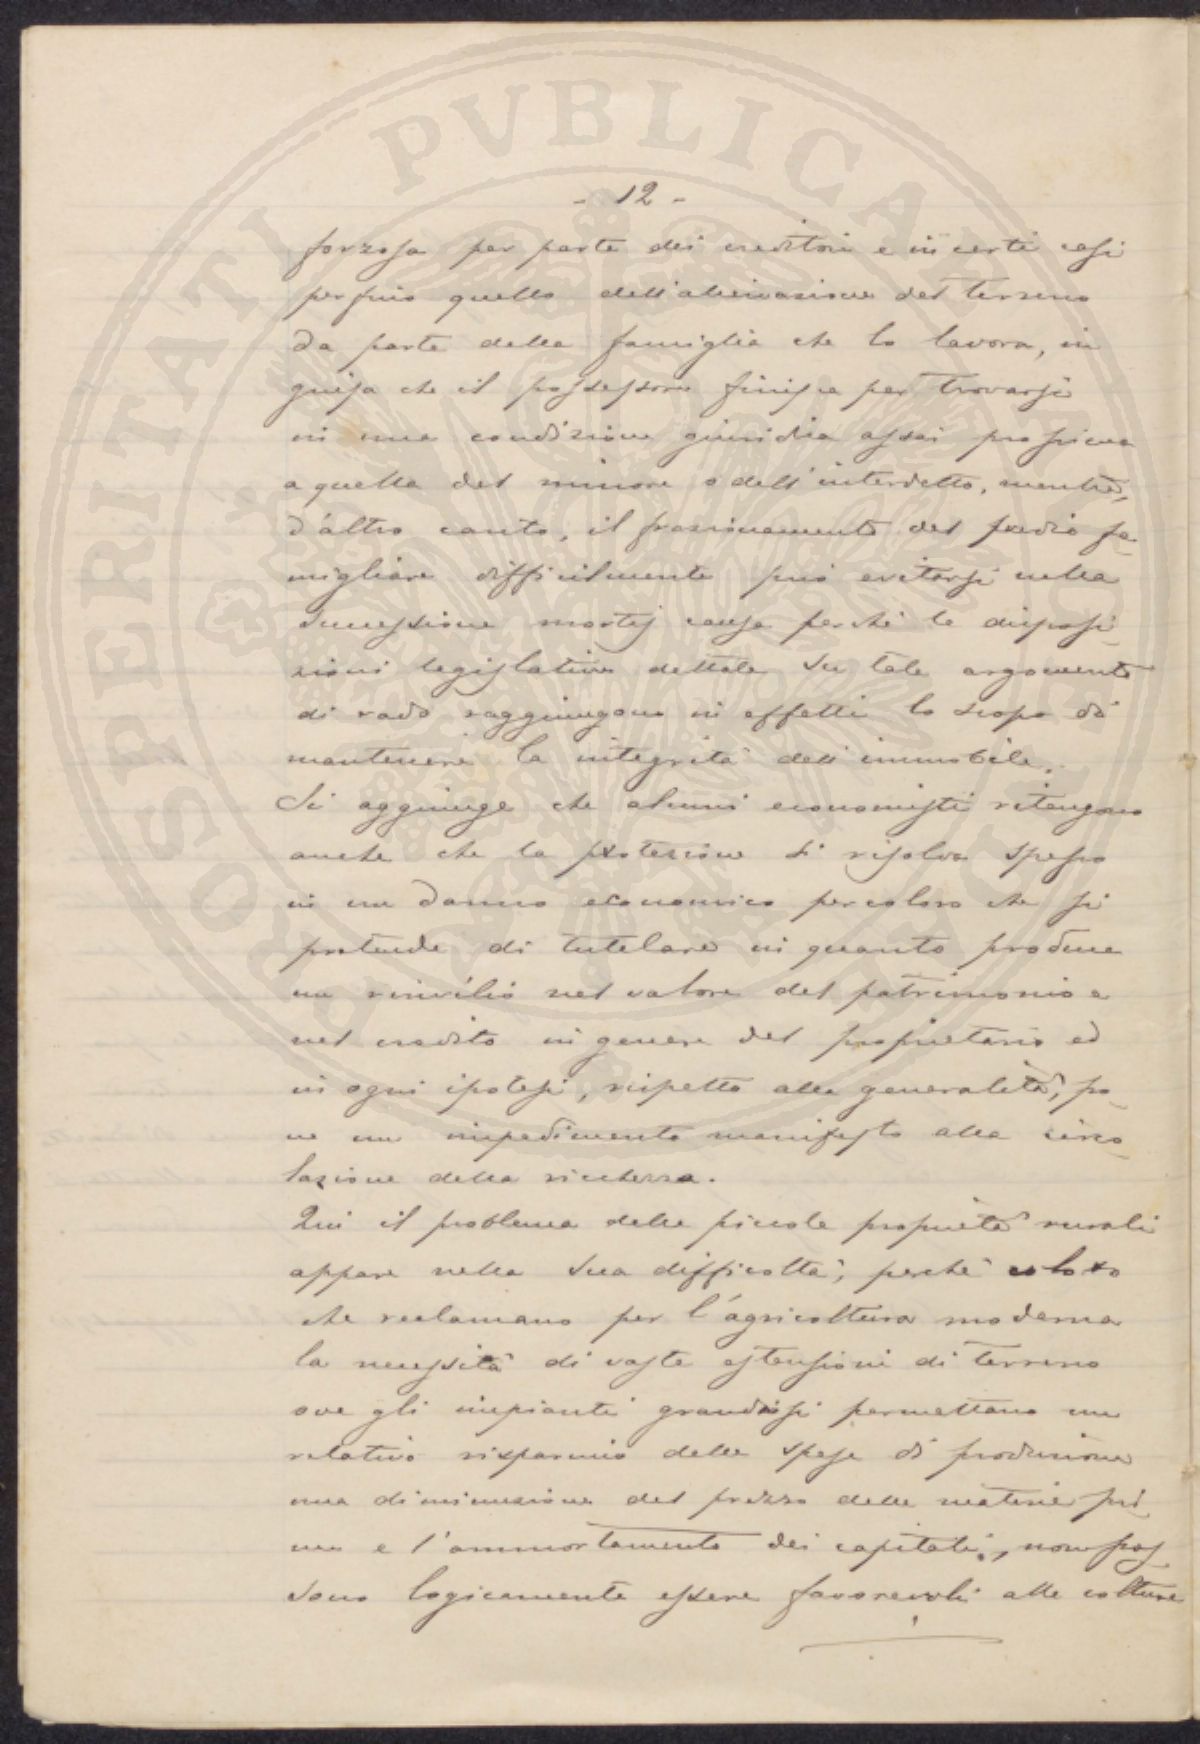 - 12 -
forzosa per parte dei creditori e in certi casi
perfino quello dell'alienazione del terreno
da parte della famiglia che lo lavora, in
guisa che il possessore finisce per trovarsi
in una condizione giuridica assai prossima
a quella del minore o dell'interdetto, mentre,
d'altro canto, il frazionamento del predio fa-
migliare difficilmente può evitarsi nella
successione mortis causa perchè le disposi-
zioni legislative dettate su tale argomento
di rado raggiungono in effetti lo scopo di
mantenere la integrità dell'immobile.
Si aggiunge che alcuni economisti ritengono
anche che la protezione si risolva spesso
in un danno economico per coloro che si
pretende di tutelare in quanto produce
un rinvilio nel valore del patrimonio e
nel credito in genere del proprietario ed
in ogni ipotesi, rispetto alla generalità, po-
ne un impedimento manifesto alla circo-
lazione della ricchezza.
Qui il problema delle piccole proprietà rurali
appare nella sua difficoltà, perchè coloro
che reclamano per l'agricoltura moderna
la necessità di vaste estensioni di terreno
ove gli impianti grandiosi permettano un
relativo risparmio delle spese di produzione
una diminuzione del prezzo delle materie pri
me e l'ammortamento dei capitali, non pos
sono logicamente essere favorevoli alle colture
PROSPERITATI PVBLICAE